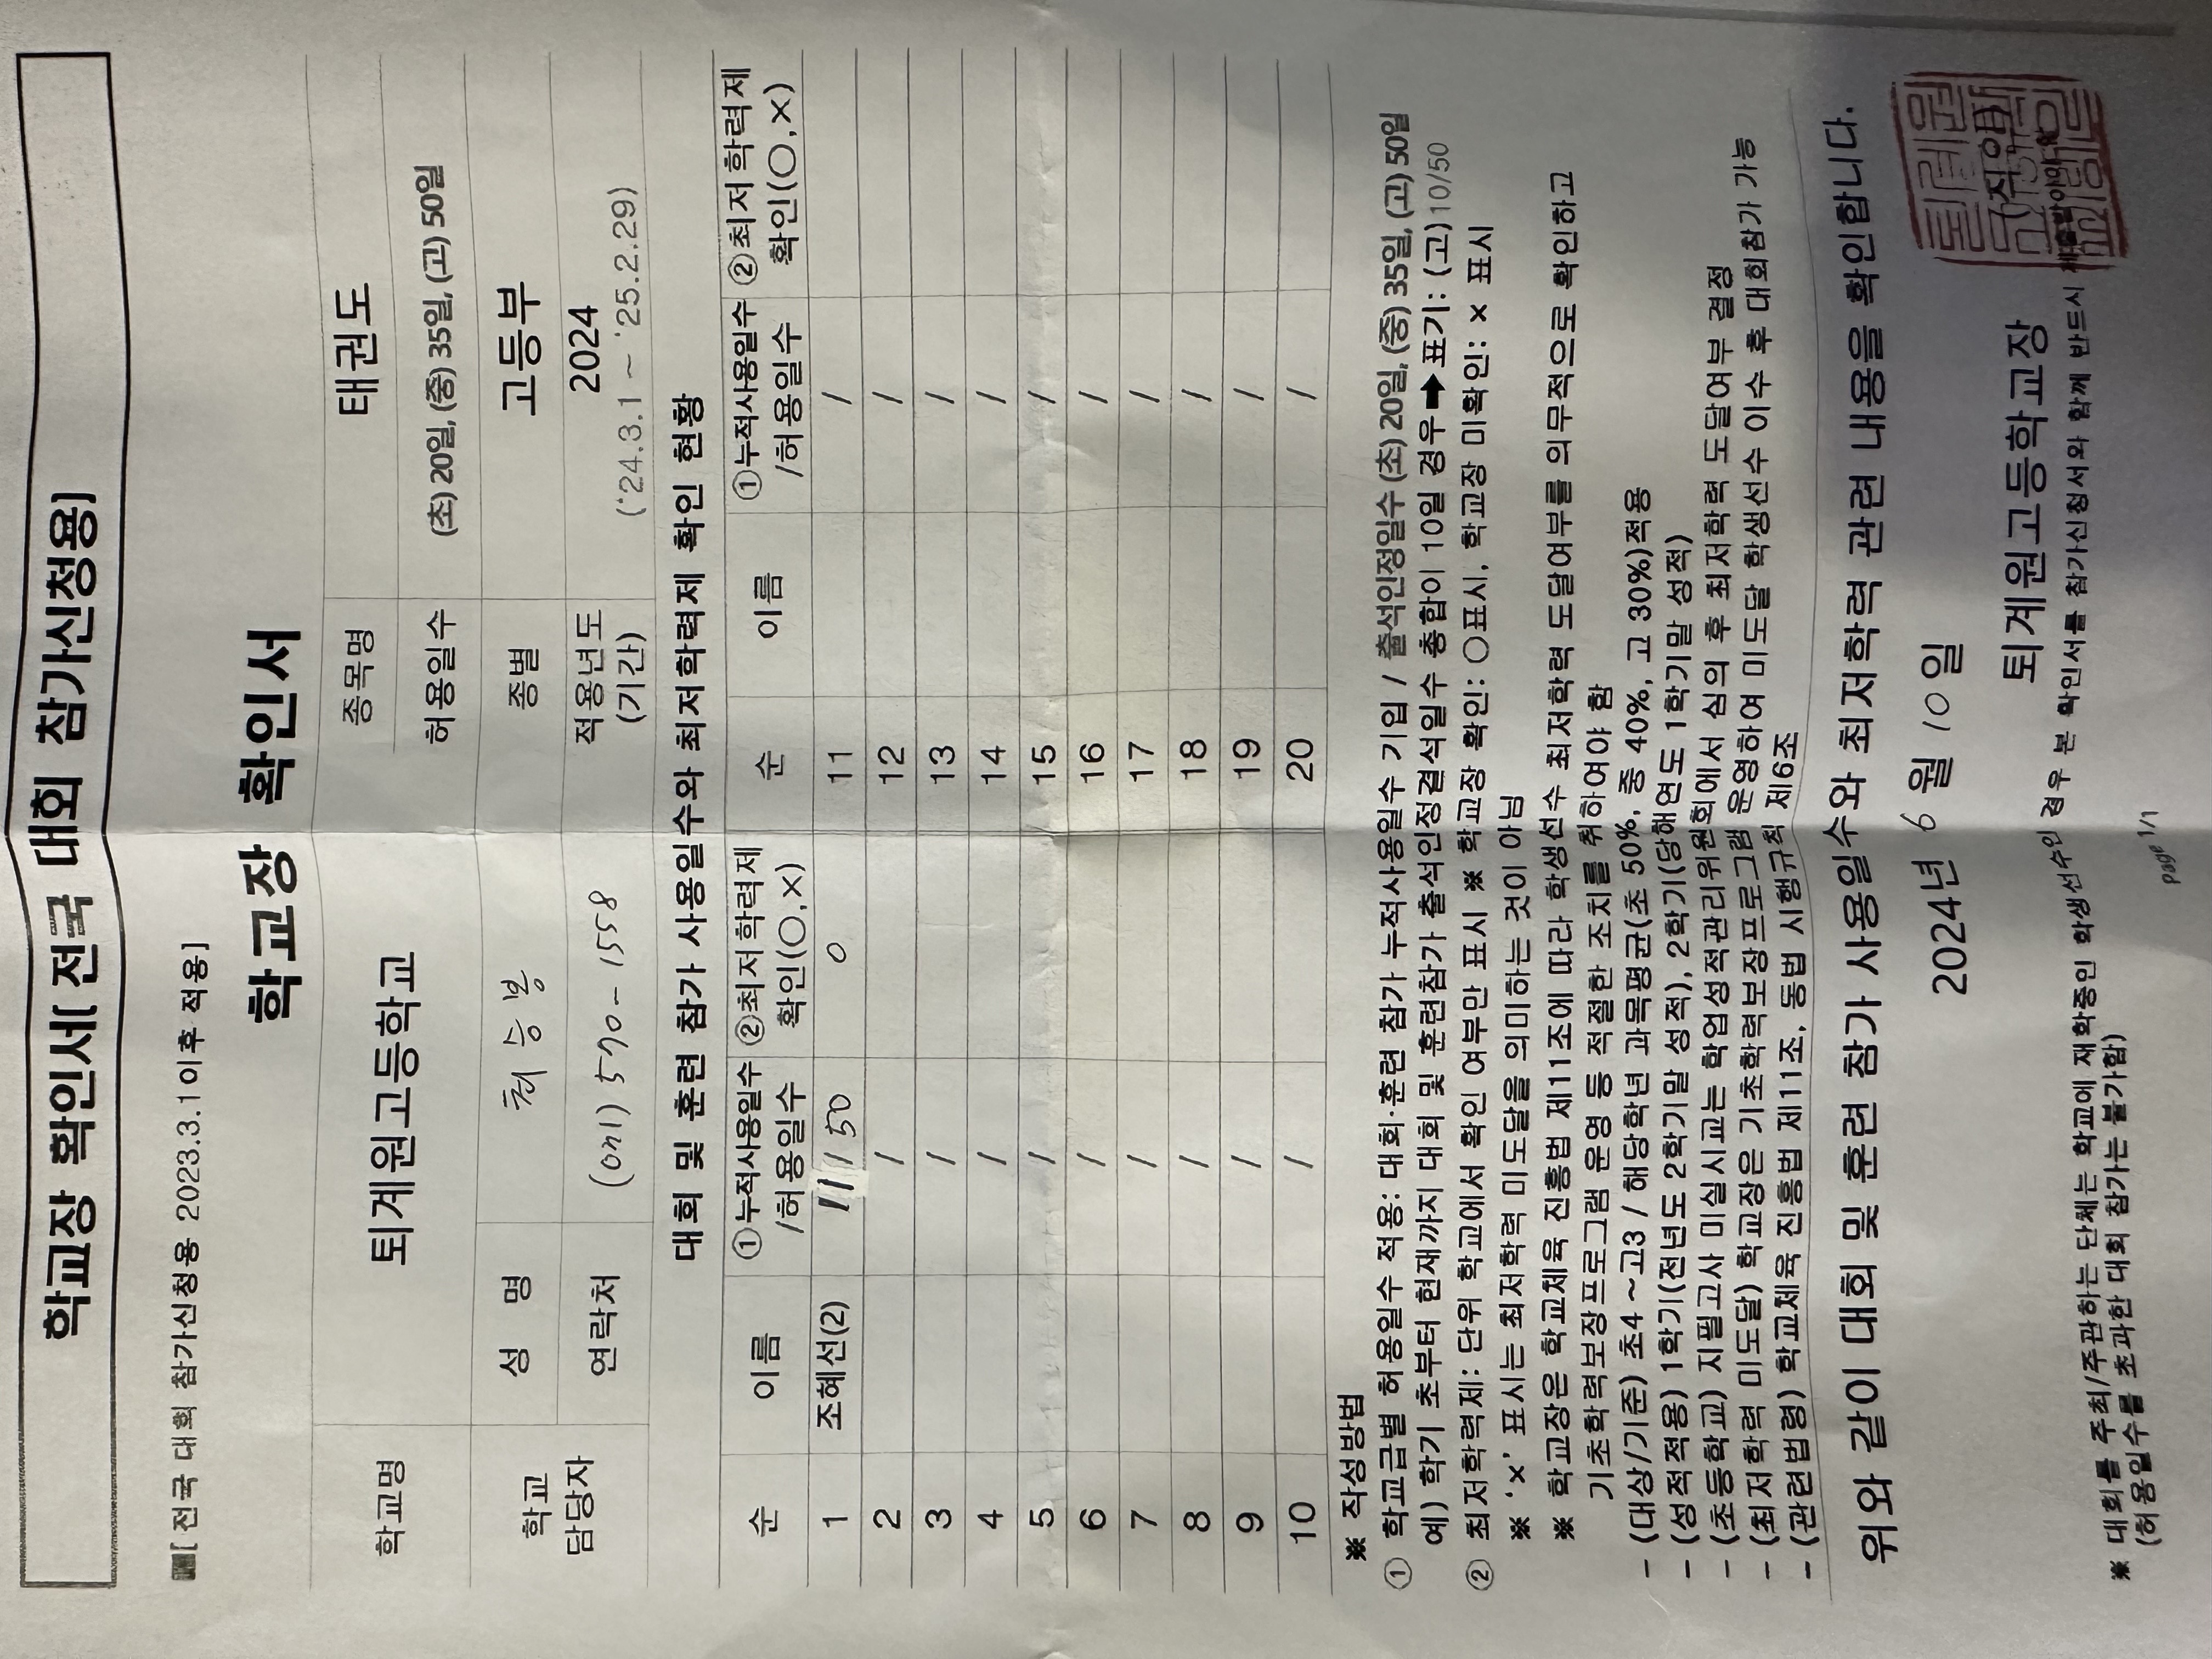 학교장 확인서[ 전국 대회 참가신청용]
■[ 전국 대회 참가신청용 2023.3.1이후 적용]
학교장 확인서
학교명 퇴계원고등학교 종목명 태권도
허용일수 (초) 20일, (중) 35일, (고) 50일
학교 담당자 성 명 최승봉 종별 고등부
연락처 (031) 570-1558 적용년도 (기간) 2024 ('24.3.1 ~ '25.2.29)
대회 및 훈련 참가 사용일수와 최저학력제 확인 현황
순 이름 ①누적사용일수 /허용일수 ②최저학력제 확인(○,×) 순 이름 ①누적사용일수 /허용일수 ②최저학력제 확인(○,×)
1 조혜선(2) 11/50 0 11 /
2 / 12 /
3 / 13 /
4 / 14 /
5 / 15 /
6 / 16 /
7 / 17 /
8 / 18 /
9 / 19 /
10 / 20 /
※ 작성방법
① 학교급별 허용일수 적용: 대회·훈련 참가 누적사용일수 기입 / 출석인정일수 (초) 20일, (중) 35일, (고) 50일
예) 학기 초부터 현재까지 대회 및 훈련참가 출석인정결석일수 총합이 10일 경우➡표기: (고)10/50
② 최저학력제: 단위 학교에서 확인 여부만 표시 ※ 학교장 확인: ○표시, 학교장 미확인: × 표시
※ '×' 표시는 최저학력 미도달을 의미하는 것이 아님
※ 학교장은 학교체육 진흥법 제11조에 따라 학생선수 최저학력 도달여부를 의무적으로 확인하고
기초학력보장프로그램 운영 등 적절한 조치를 취하여야 함
- (대상/기준) 초4 ~고3 / 해당학년 과목평균(초 50%, 중 40%, 고 30%)적용
- (성적적용) 1학기(전년도 2학기말 성적), 2학기(당해연도 1학기말 성적)
- (초등학교) 지필고사 미실시교는 학업성적관리위원회에서 심의 후 최저학력 도달여부 결정
- (최저학력 미도달) 학교장은 기초학력보장프로그램 운영하여 미도달 학생선수 이수 후 대회참가 가능
- (관련법령) 학교체육 진흥법 제11조, 동법 시행규칙 제6조
위와 같이 대회 및 훈련 참가 사용일수와 최저학력 관련 내용을 확인합니다.
2024년 6 월 10일
퇴계원고등학교장 (직인)
※ 대회를 주최/주관하는 단체는 학교에 재학중인 학생선수인 경우 본 확인서를 참가신청서와 함께 반드시
(허용일수를 초과한 대회 참가는 불가함)
page 1/1